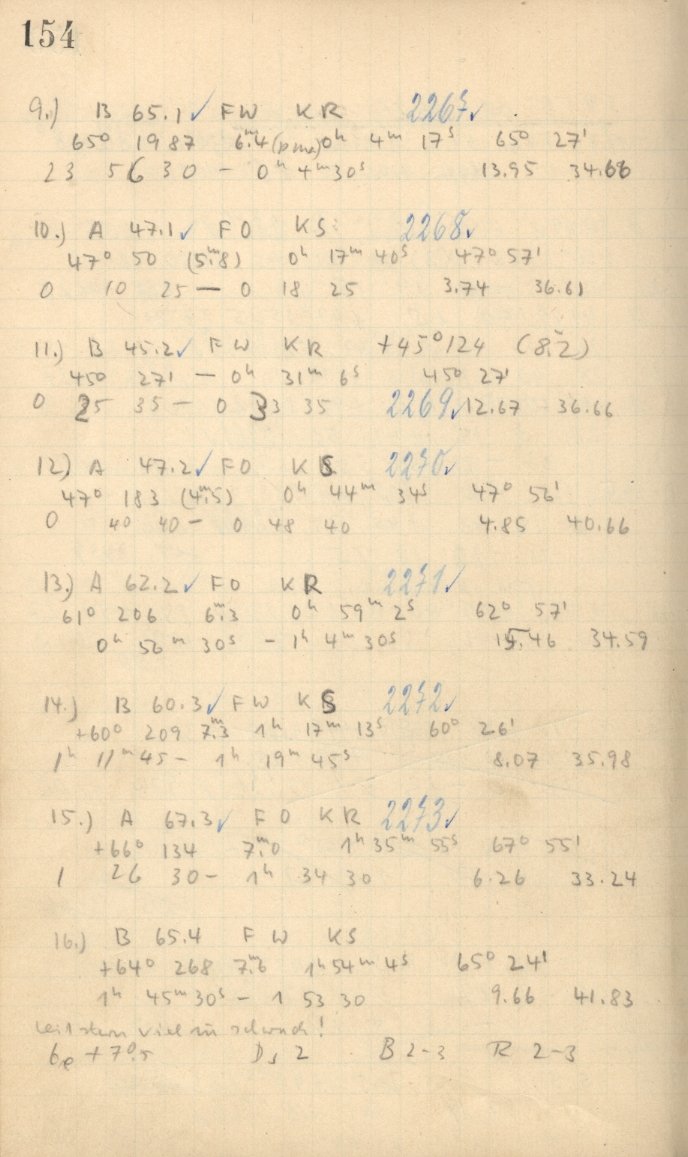 154
9.) B 65.1 ✓ FW KR 2267 ✓
65° 1987 6ᵐ.4 0ʰ 4ᵐ 17ˢ 65° 27'
23 56 30 – 0ʰ 4ᵐ 30ˢ 13.95 34.66
10.) A 47.1 ✓ FO KS 2268 ✓
47° 50 (5ᵐ.8) 0ʰ 17ᵐ 40ˢ 47° 57'
0 10 25 – 0 18 25 3.74 36.61
11.) B 45.2 ✓ FW KR +45° 124 (8ᵐ.2)
45° 27' – 0ʰ 31ᵐ 6ˢ 45° 27'
0 25 35 – 0 33 35 2269 ✓ 12.67 36.66
12.) A 47.2 ✓ FO KS 2270 ✓
47° 183 (4ᵐ.5) 0ʰ 44ᵐ 34ˢ 47° 56'
0 40 40 – 0 48 40 4.85 40.66
13.) A 62.2 ✓ FO KR 2271 ✓
61° 206 6ᵐ.3 0ʰ 59ᵐ 2ˢ 62° 57'
0ʰ 56ᵐ 30ˢ – 1ʰ 4ᵐ 30ˢ 15.46 34.59
14.) B 60.3 ✓ FW KS 2272 ✓
+60° 209 7ᵐ.3 1ʰ 17ᵐ 13ˢ 60° 26'
1ʰ 11ᵐ 45 – 1ʰ 19ᵐ 45ˢ 8.07 35.98
15.) A 67.3 ✓ FO KR 2273 ✓
+66° 134 7ᵐ.0 1ʰ 35ᵐ 55ˢ 67° 55'
1 26 30 – 1ʰ 34 30 6.26 33.24
16.) B 65.4 FW KS
+64° 268 7ᵐ.6 1ʰ 54ᵐ 4ˢ 65° 24'
1ʰ 45ᵐ 30ˢ – 1 53 30 9.66 41.83
Leitstern viel zu schwach!
+7°.5 2 B 2-3 R 2-3